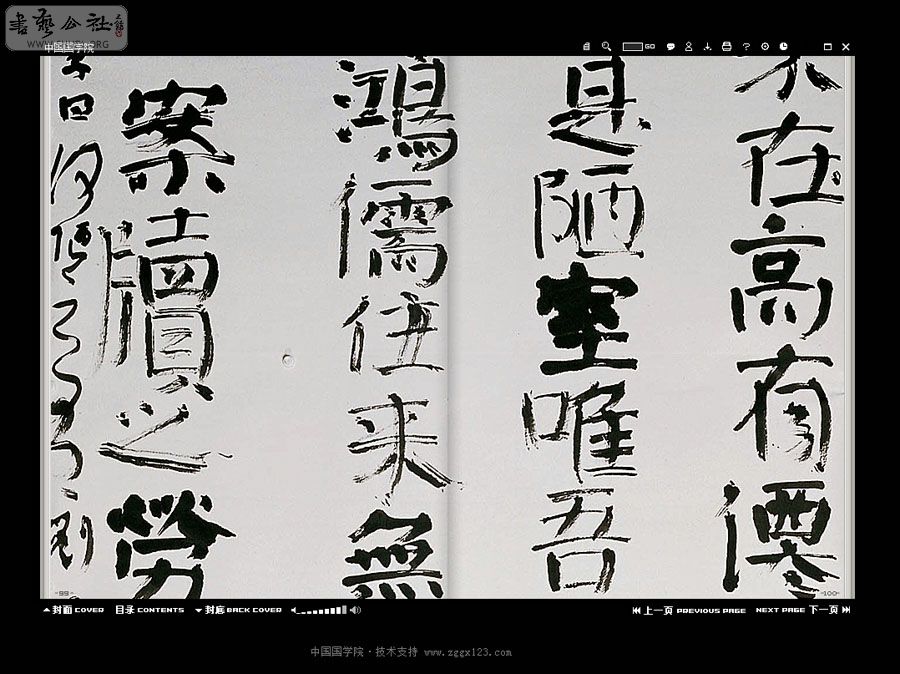 書藝公社
WWW.SHUFA.ORG
中国国学院
GO
不在高有僊
是陋室唯吾
鴻儒往来無
案牘之勞
曰何陋之有
-99-
-100-
封面 COVER
目录 CONTENTS
封底 BACK COVER
上一页 PREVIOUS PAGE
NEXT PAGE 下一页
中国国学院·技术支持 www.zggx123.com